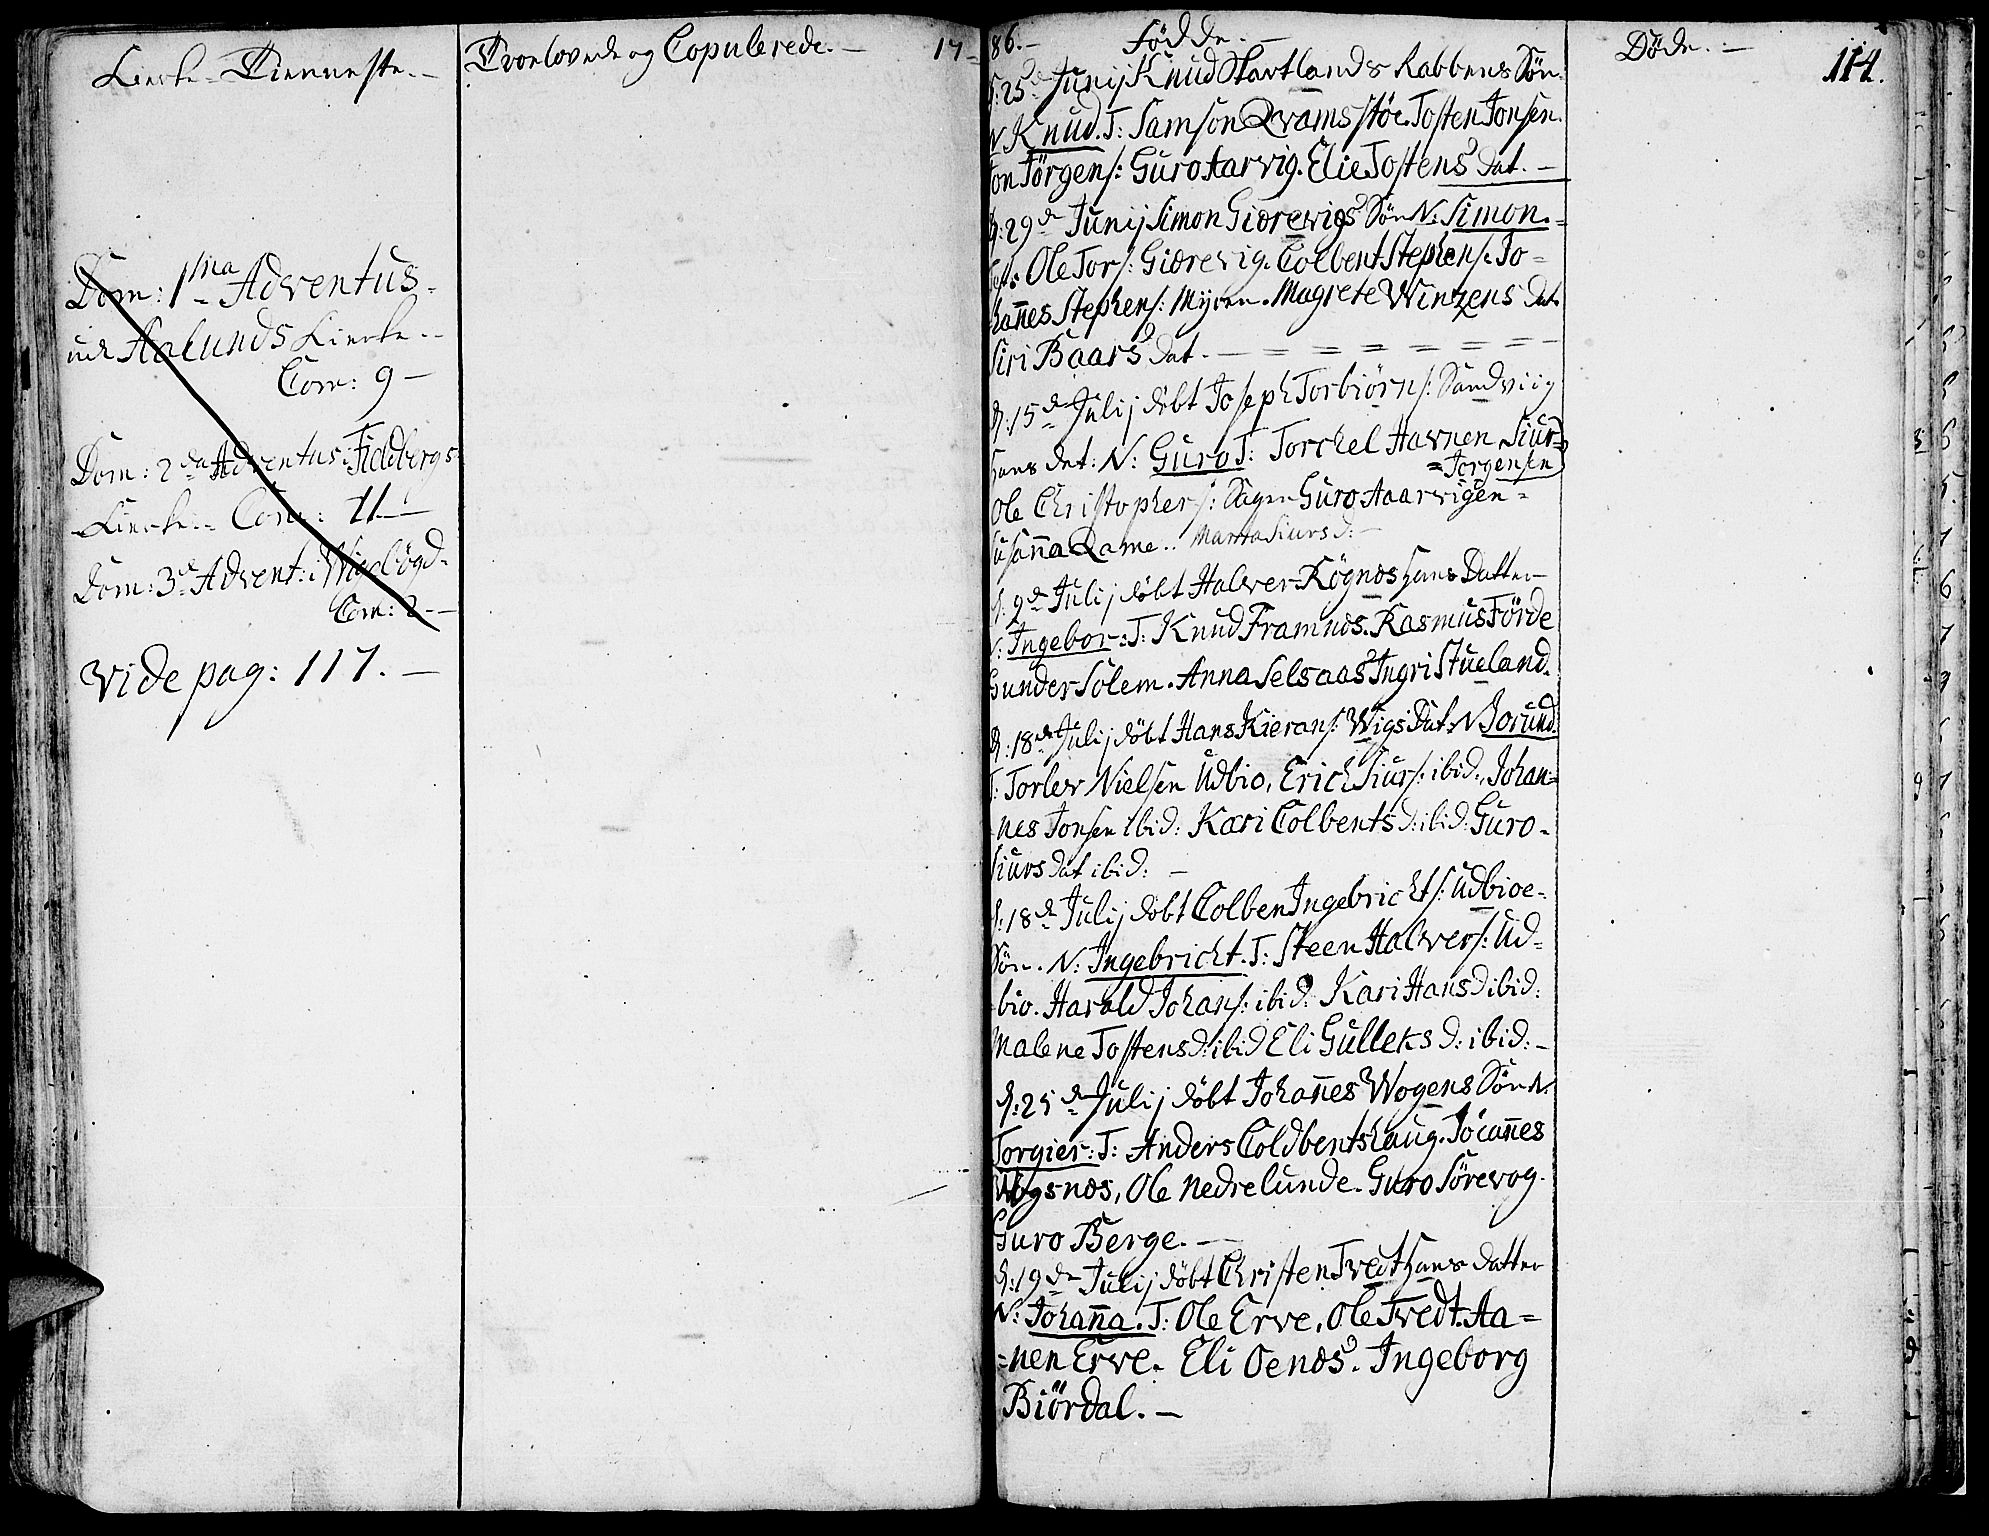 Kierke-Tienneste.-
Dom: 1ma Adventus-
udi Aalunds Kierke--
Com: 9-
Dom: 2da Adventus i Fieldbergs
Kierke- Com: 11.-
Dom: 3de Advent: i Wigebögd-
Com: 2.-
Vide pag: 117.-
Troelovede og Copulerede.-
1786.-
Födde.-
d: 25de Junij Knud Startlands Rabbens Sön
N Knud. T: Samson Qvamsstöe. Tosten Jonsen.
Jon Jörgens: Guro Aarvig. Elie Tostens Dat.-
d: 29de Junij Simon Giærevigs Sön N: Simon.-
Ole Tors: Giærevig. Colbent Stephens. Jo-
hañes Stephens: Myren. Magrete Winzens Dat
Siri Baars Dat.-
d: 15de Julij döbt Joseph Torbiörns: Sandviig
hans dat: N: Guro T: Torchel Havnen Siur
=Jörgensen
Ole Christophers: Guro Aarvigen-
Susaña Rame.. Marta Siurs d:-
d: 9de Julij döbt Halver Rögnæs hans Datter
N: Ingebor: T: Knud Framnæs. Rasmus Förde
Gunder Solem. Anna Selsaas Ingri Stueland.
d: 18de Julij döbt Hans Kierans: Wigs Dat. N Jorund.
T: Torlev Nielsen Udbio, Erich Siurs: ibid: Johan-
nes Jonsen ibid: Kari Colbents d: ibid: Guro-
Siurs dat ibid:-
d: 18de Julij döbt Colben Ingebrichts: Udbioe-
Sön. N: Ingebricht. T: Steen Halvers: Ud-
bio. Harald Johans: ibid: Kari Hans d ibid:
Malene Tostens d: ibid Eli Gulleks d: ibid:-
d: 25de Julij döbt Johañes Wogens Sön N.
Torgier: T: Anders Coldbentshaug. Johañes
Wogsnæs, Ole Nedrelunde. Guro Sörevog.
Guro Berge.-
d: 19de Julij döbt Christen Tvedt hans datter
N: Johaña. T: Ole Erve, Ole Tvedt. Aa-
=nen Erve. Eli Oenæs. Ingeborg
Biördal.-
Döde.-
114.